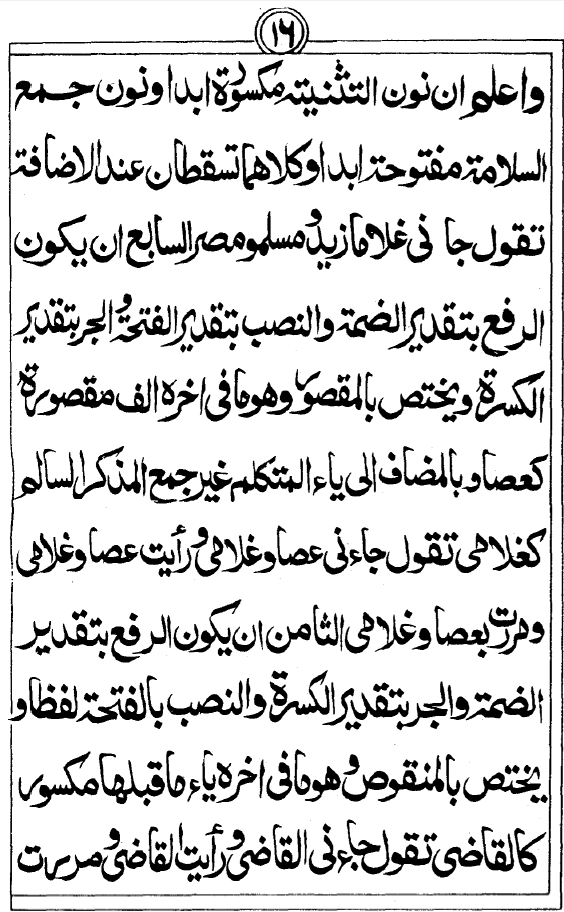 ١٦
واعلم ان نون التثنيته مكسورة ابدا ونون جمع
السلامة مفتوحة ابدا وكلاهما تسقطان عند الاضافة
تقول جانى غلاما زيد ومسلمو مصر السابع ان يكون
الرفع بتقدير الضمة والنصب بتقدير الفتحة والجر بتقدير
الكسرة ويختص بالمقصور وهو ما فى اخره الف مقصورة
كعصا وبالمضاف الى ياء المتكلم غير جمع المذكر السالم
كغلامى تقول جاءنى عصا وغلامى و رأيت عصا وغلامى
ومررت بعصا وغلامى الثامن ان يكون الرفع بتقدير
الضمة والجر بتقدير الكسرة والنصب بالفتحة لفظا و
يختص بالمنقوص وهو ما فى اخره ياء ما قبلها مكسور
كالقاضى تقول جاءنى القاضى و رأيت القاضى و مررت